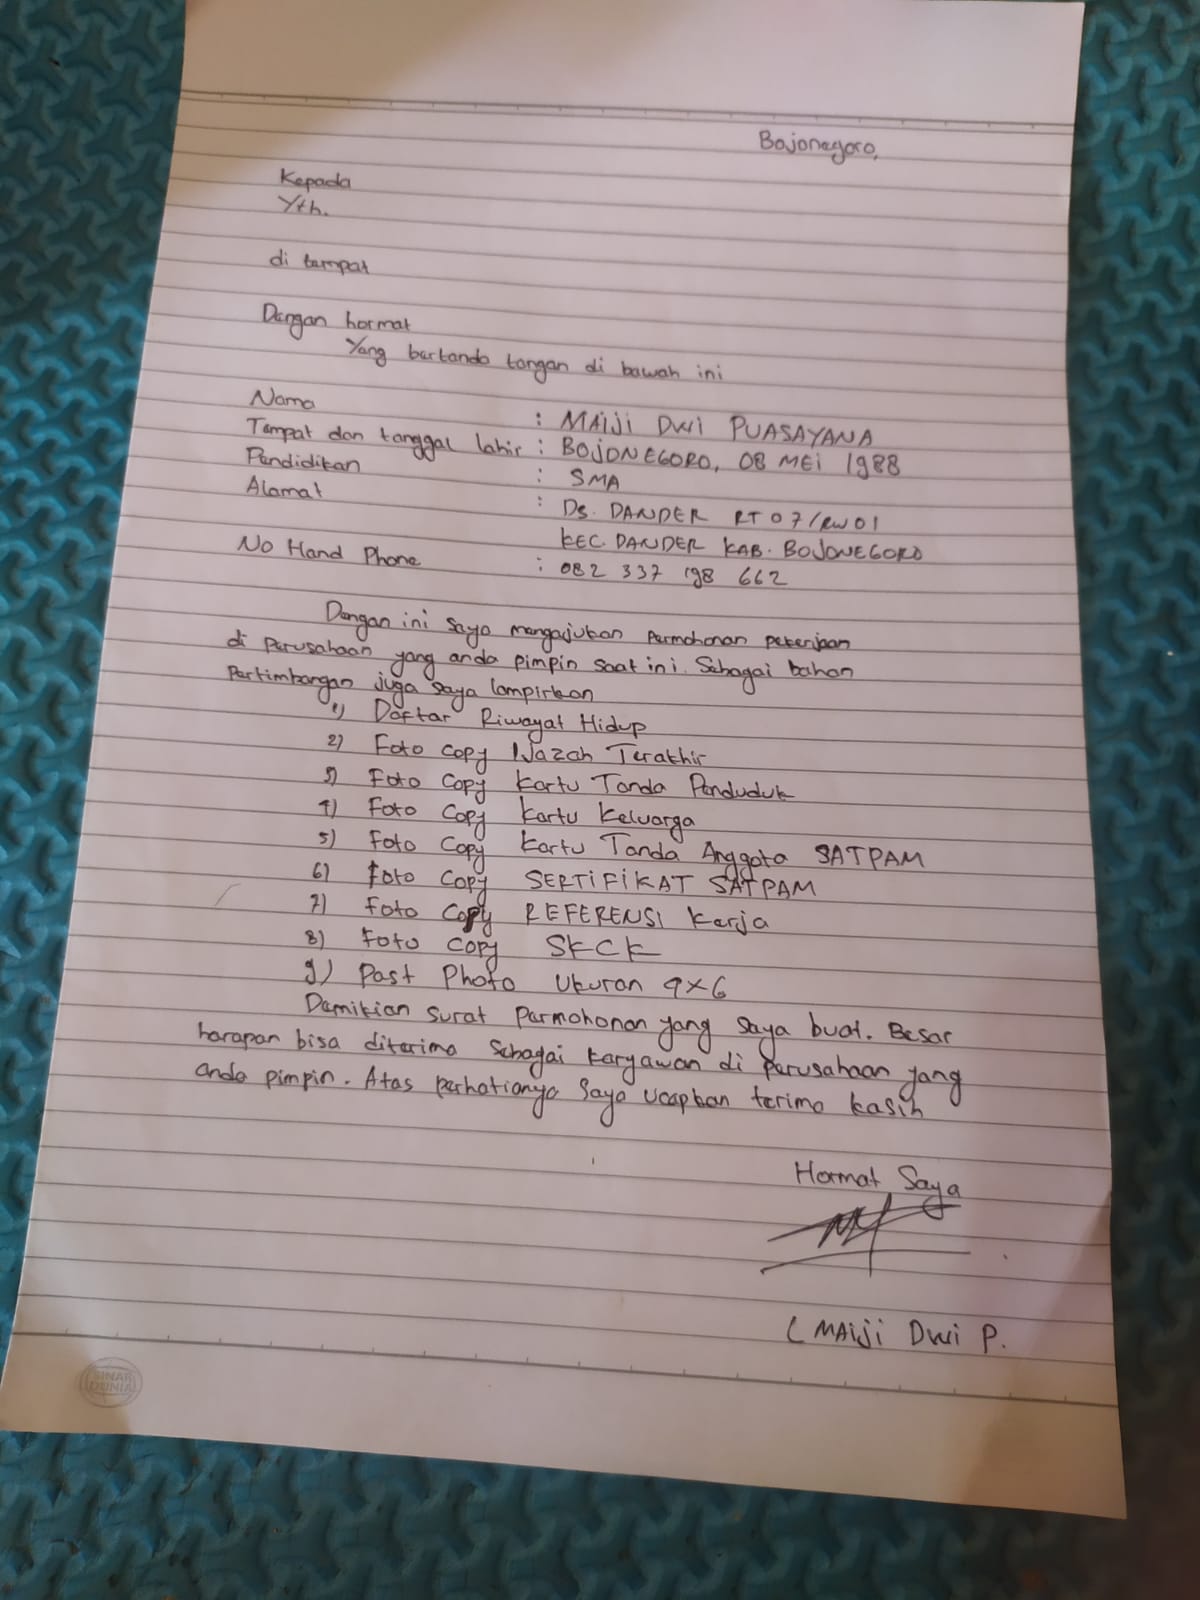 Bojonegoro,
Kepada
Yth.
di tempat
Dengan hormat
Yang bertanda tangan di bawah ini
Nama : MAIJI DWI PUASAYANA
Tempat dan tanggal lahir : BOJONEGORO, 08 MEI 1988
Pendidikan : SMA
Alamat : Ds. DANDER RT 07/RW 01
KEC. DANDER KAB. BOJONEGORO
No Hand Phone : 082 337 198 662
Dengan ini saya mengajukan permohonan pekerjaan
di perusahaan yang anda pimpin saat ini. Sebagai bahan
Pertimbangan juga saya lampirkan
1) Daftar Riwayat Hidup
2) Foto Copy Ijazah Terakhir
3) Foto Copy Kartu Tanda Penduduk
4) Foto Copy Kartu Keluarga
5) Foto Copy Kartu Tanda Anggota SATPAM
6) Foto Copy SERTIFIKAT SATPAM
7) Foto Copy REFERENSI Kerja
8) Foto Copy SKCK
9) Past Photo Ukuran 4x6
Demikian surat permohonan yang saya buat. Besar
harapan bisa diterima sebagai karyawan di perusahaan yang
anda pimpin. Atas perhatianya saya ucapkan terima kasih
Hormat Saya
( MAIJI DWI P.
SINAR
DUNIA